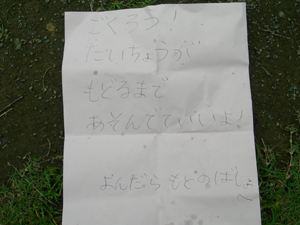 ごくろう!
たいちょうが
もどるまで
あそんでていいよ!
よんだら もとのばしょ
へ